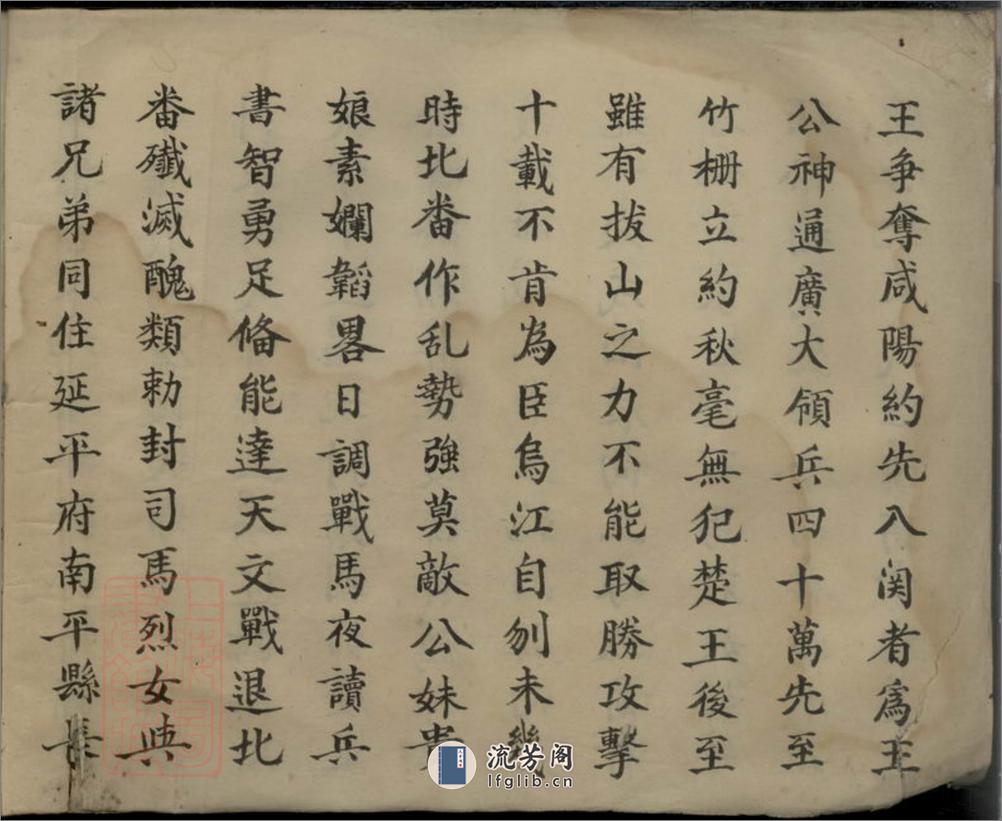 王爭奪咸陽約先入関者爲王
公神通廣大領兵四十萬先至
竹栅立約秋毫無犯楚王後至
雖有拔山之力不能取勝攻擊
十載不肯為臣烏江自刎未幾
時北畨作乱勢強莫敵公妹贵
娘素嫻韜畧日調戰馬夜讀兵
書智勇足俻能達天文戰退北
畨殲滅醜類勅封司馬烈女與
諸兄弟同住延平府南平縣長
流芳阁
lfglib.cn